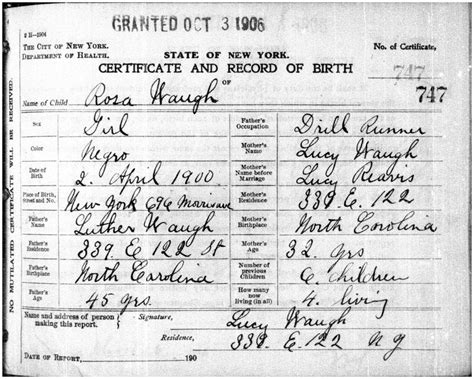 GRANTED OCT 3 1906
2 H-1904
THE CITY OF NEW YORK.
DEPARTMENT OF HEALTH.
STATE OF NEW YORK.
No. of Certificate,
CERTIFICATE AND RECORD OF BIRTH
OF
747
747
Name of Child Rosa Waugh
Sex Girl Father's Occupation Drill Runner
Color Negro Mother's Name Lucy Waugh
Date of Birth 2. April 1900 Mother's Name before Marriage Lucy
Place of Birth, Street and No. New York 696 Mother's Residence 339. E. 122
Father's Name Luther Waugh Mother's Birthplace North Carolina
Father's Residence 339. E 122 St Mother's Age 32. yrs
Father's Birthplace North Carolina Number of previous Children 6. children
Father's Age 45 yrs. How many now living (in all) 4. living
Name and address of person making this report. Signature, Lucy Waugh
Residence, 339. E. 122 N Y
DATE OF REPORT, 190
NO MUTILATED CERTIFICATE WILL BE RECEIVED.